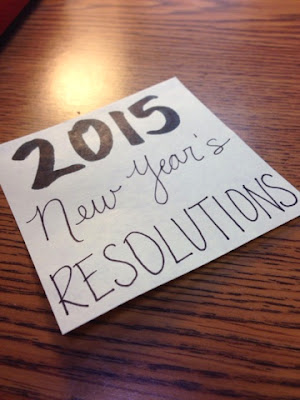 2015
New Year's
RESOLUTIONS